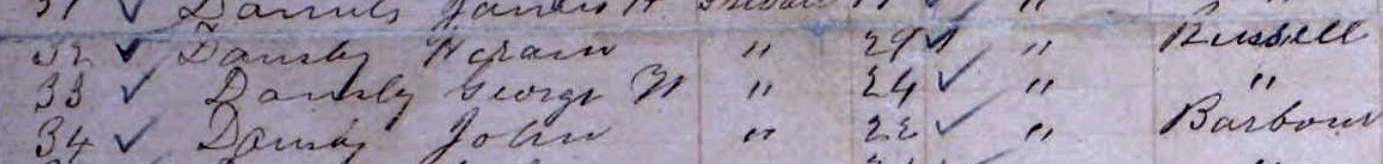 31 ✓ Daniels James H Private
32 ✓ Dansby Hiram " 29 ✓ " Russell
33 ✓ Dansby George W " 24 ✓ " "
34 ✓ Dansby John " 22 ✓ " Barbour